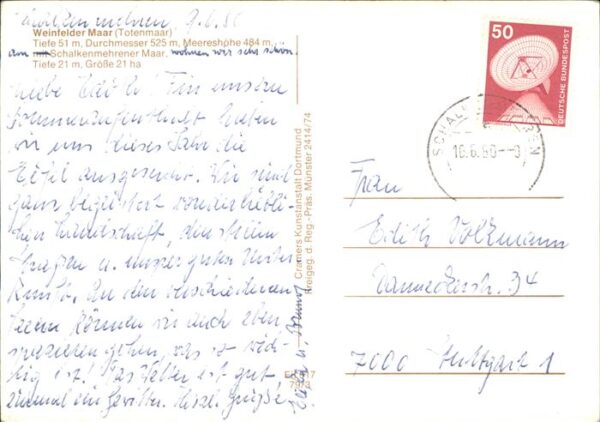 Schalkenmehren 9.6.80
Weinfelder Maar (Totenmaar)
Tiefe 51 m, Durchmesser 525 m, Meereshöhe 484 m,
am Schalkenmehrener Maar, wohnen wir sehr schön!
Tiefe 21 m, Größe 21 ha
Liebe Edith! Für unseren
Sommeraufenthalt haben
wir uns dieses Jahr die
Eifel ausgesucht. Wir sind
ganz begeistert von der liebli-
chen Landschaft, den stillen
u. unserer guten Unter
kunft. An den verschiedenen
können wir auch eben
spazieren gehen, was so wich-
tig ist! Das Wetter ist gut
einmal ein Gewitter. Herzl. Grüße
Cramers Kunstanstalt Dortmund
Freigeg. d. Reg.-Präs. Münster 2414/74
50
DEUTSCHE BUNDESPOST
16.6.80
Frau
Edith Volzmann
Danneckerstr. 34
7000 Stuttgart 1